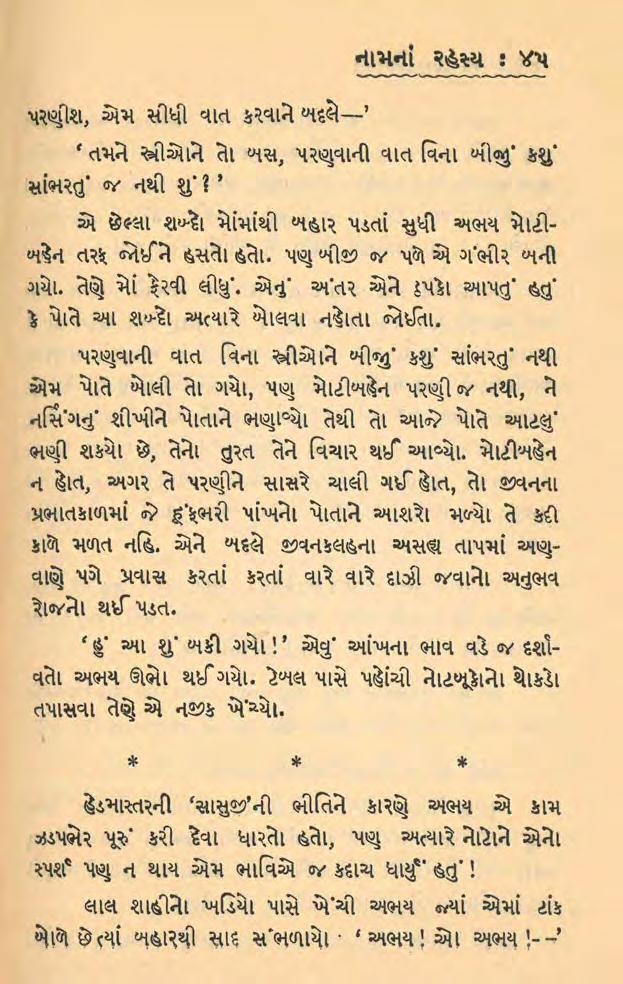 નામનાં રહસ્ય : ૪૫
પરણીશ, એમ સીધી વાત કરવાને બદલે—’
‘ તમને સ્ત્રીઓને તો બસ, પરણવાની વાત વિના બીજું કશું
સાંભરતું જ નથી શું ? ’
એ છેલ્લા શબ્દો મોંમાંથી બહાર પડતાં સુધી અભય મોટી-
બહેન તરફ જોઈને હસતો હતો. પણ બીજી જ પળે એ ગંભીર બની
ગયો. તેણે મોં ફેરવી લીધું. એનું અંતર એને ઠપકો આપતું હતું
કે પોતે આ શબ્દો અત્યારે બોલવા નહોતા જોઈતા.
પરણવાની વાત વિના સ્ત્રીઓને બીજું કશું સાંભરતું નથી
એમ પોતે બોલી તો ગયો, પણ મોટીબહેન પરણી જ નથી, ને
નર્સિંગનું શીખીને પોતાને ભણાવ્યો તેથી તો આજે પોતે આટલું
ભણી શક્યો છે, તેનો તુરત તેને વિચાર થઈ આવ્યો. મોટીબહેન
ન હોત, અગર તે પરણીને સાસરે ચાલી ગઈ હોત, તો જીવનના
પ્રભાતકાળમાં જે હૂંફભરી પાંખનો પોતાને આશરો મળ્યો તે કદી
કાળે મળત નહિ. એને બદલે જીવનકલહના અસહ્ય તાપમાં અણ-
વાણે પગે પ્રવાસ કરતાં કરતાં વારે વારે દાઝી જવાનો અનુભવ
રોજનો થઈ પડત.
‘ હું આ શું બકી ગયો ! ’ એવું આંખના ભાવ વડે જ દર્શા-
વતો અભય ઊભો થઈ ગયો. ટેબલ પાસે પહોંચી નોટબૂકોનો થોકડો
તપાસવા તેણે એ નજીક ખેંચ્યો.
* * *
હેડમાસ્તરની ‘સાસુજી’ની ભીતિને કારણે અભય એ કામ
ઝડપભેર પૂરું કરી દેવા ધારતો હતો, પણ અત્યારે નોટોને એનો
સ્પર્શ પણ ન થાય એમ ભાવિએ જ કદાચ ધાર્યું હતું !
લાલ શાહીનો ખડિયો પાસે ખેંચી અભય જ્યાં એમાં ટાંક
બોળે છે ત્યાં બહારથી સાદ સંભળાયો · ‘ અભય ! ઓ અભય !--’